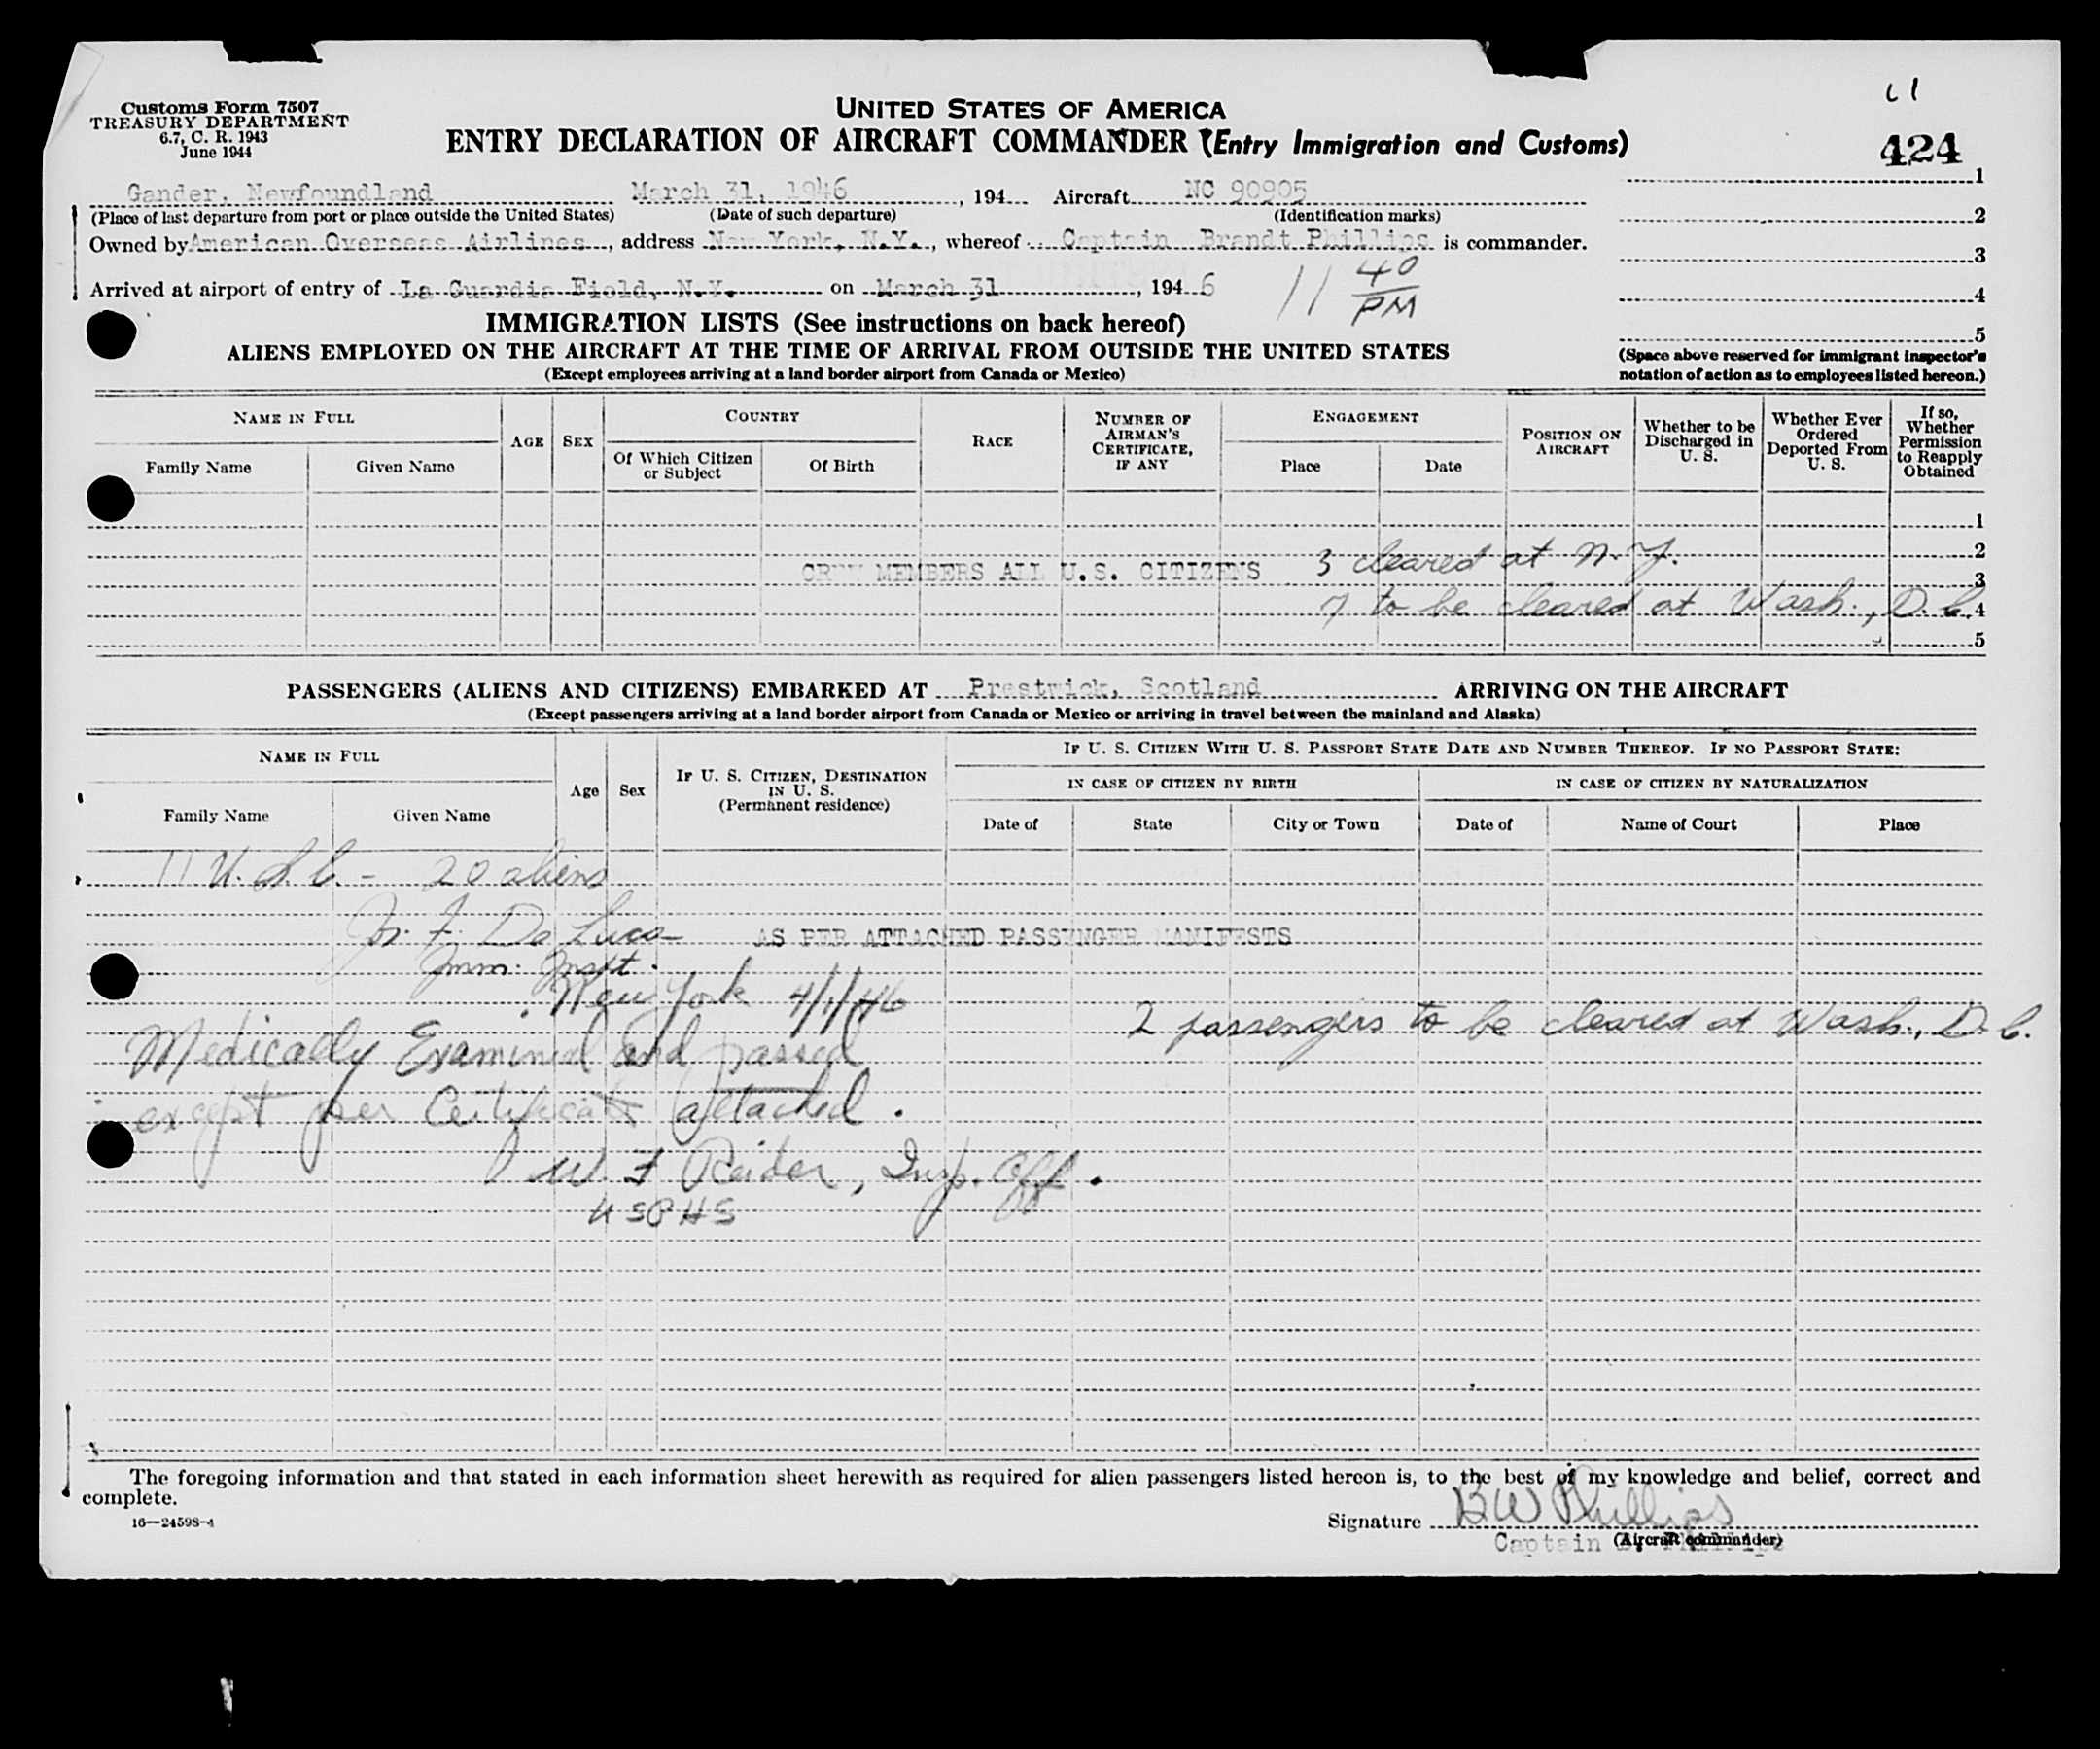 Customs Form 7507
TREASURY DEPARTMENT
6.7, C. R. 1943
June 1944
UNITED STATES OF AMERICA
ENTRY DECLARATION OF AIRCRAFT COMMANDER (Entry Immigration and Customs)
424
Gander, Newfoundland March 31, 1946, 194 Aircraft NC 90905
(Place of last departure from port or place outside the United States) (Date of such departure) (Identification marks)
Owned by American Overseas Airlines, address New York, N.Y., whereof Captain Brandt Phillips is commander.
Arrived at airport of entry of La Guardia Field, N.Y. on March 31, 1946 11 40 PM
1
2
3
4
5
(Space above reserved for immigrant inspector's
notation of action as to employees listed hereon.)
IMMIGRATION LISTS (See instructions on back hereof)
ALIENS EMPLOYED ON THE AIRCRAFT AT THE TIME OF ARRIVAL FROM OUTSIDE THE UNITED STATES
(Except employees arriving at a land border airport from Canada or Mexico)
NAME IN FULL
Family Name
Given Name
AGE
SEX
COUNTRY
Of Which Citizen
or Subject
Of Birth
RACE
NUMBER OF
AIRMAN'S
CERTIFICATE,
IF ANY
ENGAGEMENT
Place
Date
POSITION ON
AIRCRAFT
Whether to be
Discharged in
U. S.
Whether Ever
Ordered
Deported From
U. S.
If so,
Whether
Permission
to Reapply
Obtained
1
2
CREW MEMBERS ALL U.S. CITIZENS 3 cleared at N.Y.
3
7 to be cleared at Wash., D.C. 4
5
PASSENGERS (ALIENS AND CITIZENS) EMBARKED AT Prestwick, Scotland ARRIVING ON THE AIRCRAFT
(Except passengers arriving at a land border airport from Canada or Mexico or arriving in travel between the mainland and Alaska)
NAME IN FULL
Family Name
Given Name
Age
Sex
IF U. S. CITIZEN, DESTINATION
IN U. S.
(Permanent residence)
IF U. S. CITIZEN WITH U. S. PASSPORT STATE DATE AND NUMBER THEREOF. IF NO PASSPORT STATE:
IN CASE OF CITIZEN BY BIRTH
IN CASE OF CITIZEN BY NATURALIZATION
Date of
State
City or Town
Date of
Name of Court
Place
11 U.S.C. - 20 aliens
Jos. F. De Luca
AS PER ATTACHED PASSENGER MANIFESTS
Imm. Inspt.
New York 4/1/46
2 passengers to be cleared at Wash., D.C.
Medically Examined and passed
except per Certificate attached.
W. F. Reider, Insp. Off.
USPHS
The foregoing information and that stated in each information sheet herewith as required for alien passengers listed hereon is, to the best of my knowledge and belief, correct and
complete.
16—24598-4
Signature BW Phillips
(Aircraft commander)
Captain